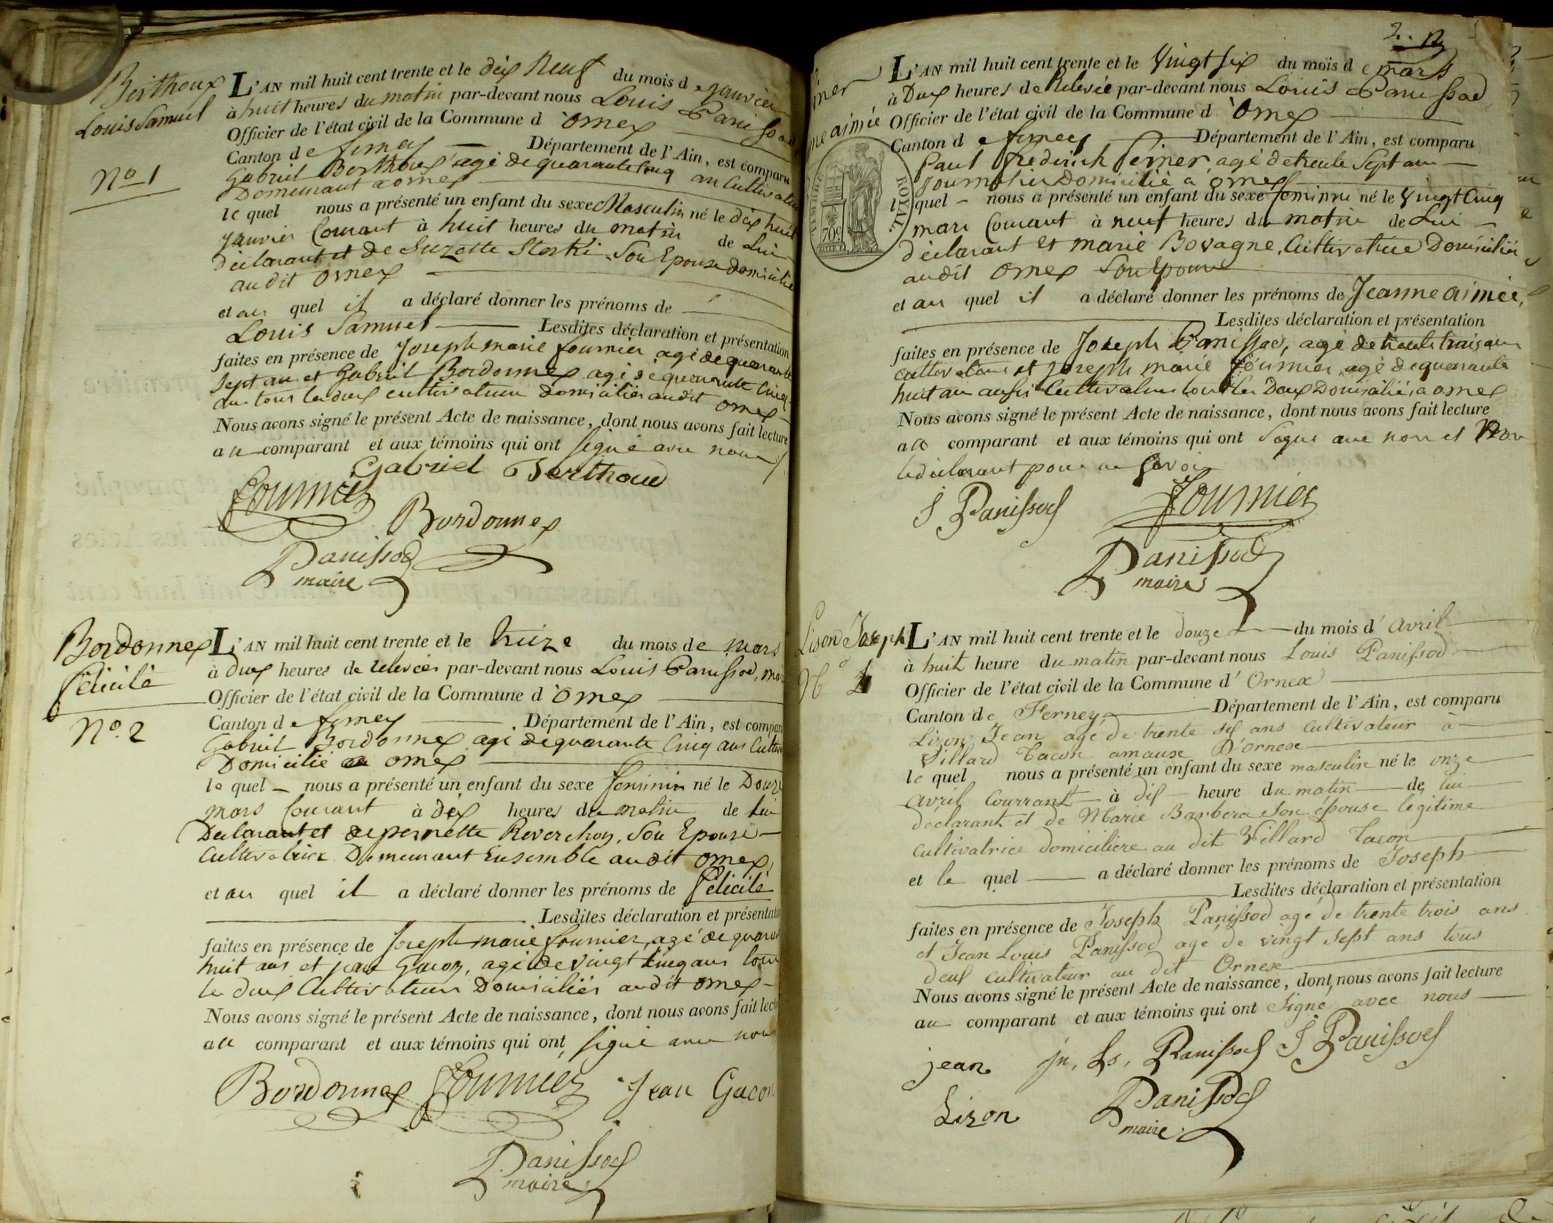 Berthoux
Louis Samuel
No 1
L'AN mil huit cent trente et le dix neuf du mois de janvier
à huit heures du matin par-devant nous Louis Panissod
Officier de l'état civil de la Commune d'ornex
Canton de ferney Département de l'Ain, est comparu
Gabriel Berthoux agé de quarante cinq ans Cultivateur
Demeurant a ornex
le quel nous a présenté un enfant du sexe Masculin né le dix huit
janvier Courant à huit heures du matin de Lui
déclarant et de Suzette Sterki Son Epouse domiciliée
audit Ornex
et au quel il a déclaré donner les prénoms de
Louis Samuel Lesdites déclaration et présentation
faites en présence de Joseph marie fournier agé de quarante
sept ans et Gabriel Bordonnex agé de quarante cinq
ans tous les deux cultivateurs domiciliés audit ornex
Nous avons signé le présent Acte de naissance, dont nous avons fait lecture
au comparant et aux témoins qui ont signé avec nous
Gabriel Berthoud
fournier
Bordonnex
Panissod
maire
Bordonnex
Félicité
No. 2
L'AN mil huit cent trente et le treize du mois de mars
à deux heures de relevées par-devant nous Louis Panissod, maire
Officier de l'état civil de la Commune d'ornex
Canton de ferney Département de l'Ain, est comparu
Gabriel Bordonnex agé de quarante Cinq ans Cultiv
Domicilié a ornex
le quel nous a présenté un enfant du sexe féminin né le Douze
mars Courant à dix heures du matin de Lui
Déclarant et de pernette Reverchon, Son Epouse
Cultivatrice Demeurant Ensemble audit ornex
et au quel il a déclaré donner les prénoms de Félicité
Lesdites déclaration et présentation
faites en présence de Joseph marie fournier, agé de quarante
huit ans et jean Gacon, agé de vingt cinq ans tous
les deux Cultivateurs Domiciliés audit ornex
Nous avons signé le présent Acte de naissance, dont nous avons fait lecture
au comparant et aux témoins qui ont signé avec nous
Bordonnex fournier Jean Gacon
Panissod
maire
2..
aimée
ROYAL
L'AN mil huit cent trente et le Vingt six du mois de mars
à Deux heures de Relevée par-devant nous Louis Panissod
Officier de l'état civil de la Commune d'ornex
Canton de ferney Département de l'Ain, est comparu
Paul frederich agé de trente Sept ans
journalier Domicilié a ornex
le quel nous a présenté un enfant du sexe féminin né le Vingt Cinq
mars Courant à neuf heures du matin de Lui
déclarant et marie Bovagne, Cultivatrice Domiciliée
audit ornex Son Epouse
et au quel il a déclaré donner les prénoms de Jeanne aimée,
Lesdites déclaration et présentation
faites en présence de Joseph Panissod, agé de trente trois ans
cultivateur et joseph marie fournier, agé de quarante
huit ans aussi Cultivateur tous les Deux Domiciliés a ornex
Nous avons signé le présent Acte de naissance, dont nous avons fait lecture
au comparant et aux témoins qui ont signé avec nous et Non
le déclarant pour ne savoir
J Panissod fournier
Panissod
maire
Lison Joseph
No 4
L'AN mil huit cent trente et le douze du mois d'avril
à huit heure du matin par-devant nous Louis Panissod
Officier de l'état civil de la Commune d'Ornex
Canton de Ferney Département de l'Ain, est comparu
Lizon Jean agé de trente six ans cultivateur à
Villard Tacon D'ornex
le quel nous a présenté un enfant du sexe masculin né le onze
avril Courrant à dix heure du matin de lui
declarant et de Marie Barbera son épouse légitime
cultivatrice domiciliere au dit Villard Tacon
et le quel a déclaré donner les prénoms de Joseph
Lesdites déclaration et présentation
faites en présence de Joseph Panissod agé de trente trois ans
et Jean Louis Panissod agé de vingt sept ans tous
deux cultivateur au dit Ornex
Nous avons signé le présent Acte de naissance, dont nous avons fait lecture
au comparant et aux témoins qui ont signé avec nous
jean jn, Ls, Panissod J Panissod
Lizon
Panissod
maire